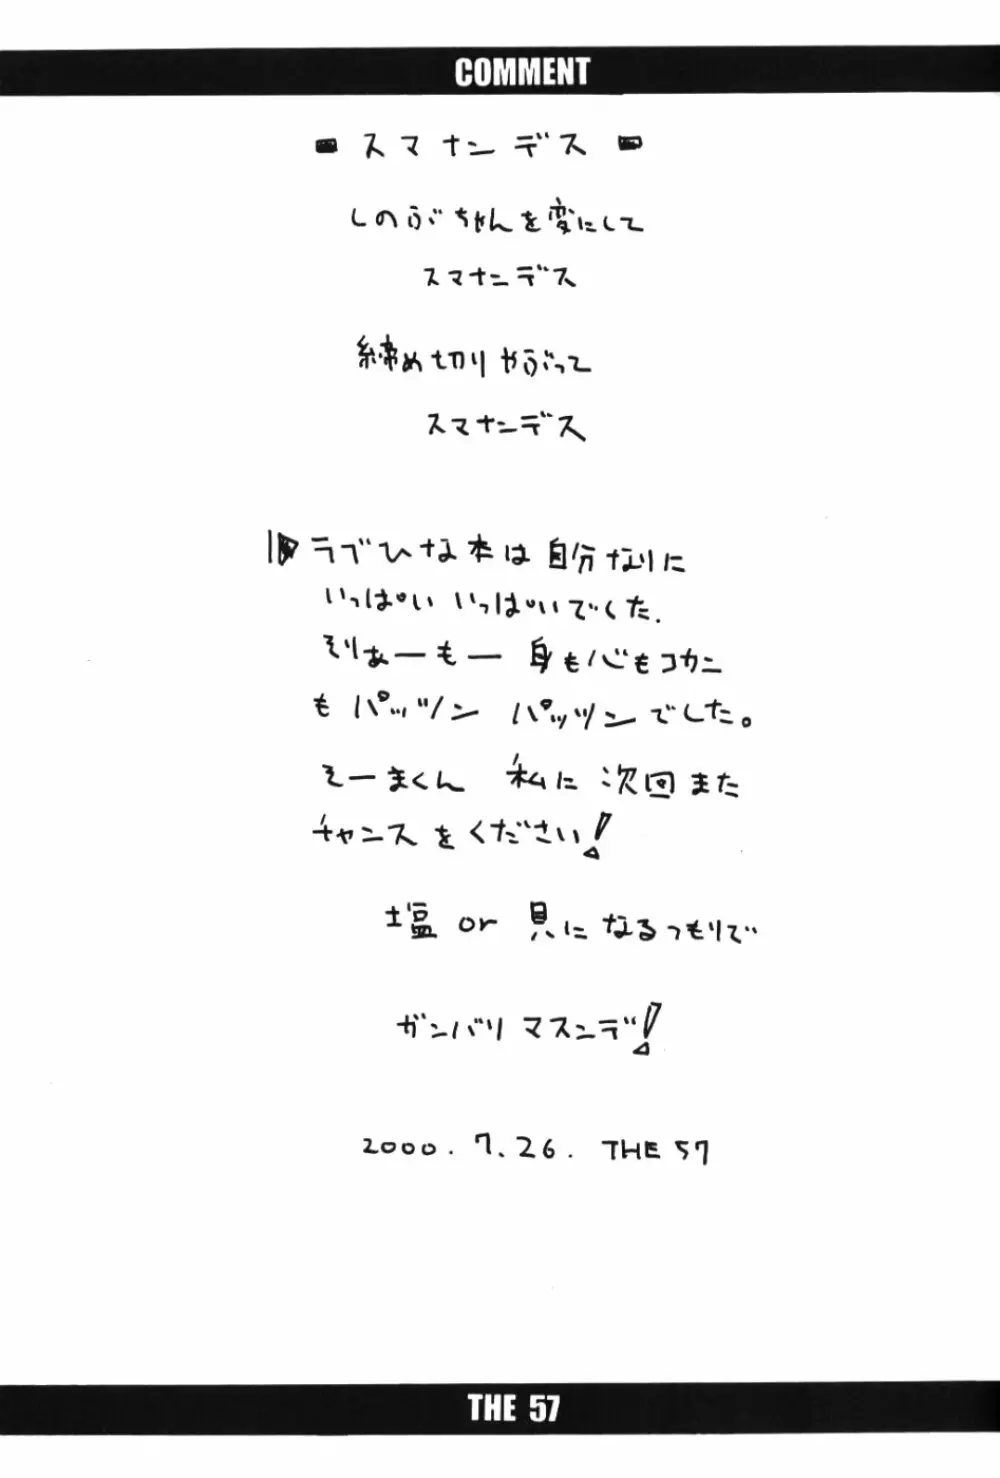 COMMENT
スマナンデス
しのぶちゃんを変にして
スマナンデス
締め切りやぶって
スマナンデス
ラブひな本は自分なりに
いっぱいいっぱいでした.
そりゃーもー身も心もコカン
もパッツンパッツンでした。
そーまくん 私に次回また
チャンスをください!
塩 or 貝になるつもりで
ガンバリマスンデ!
2000.7.26. THE 57
THE 57